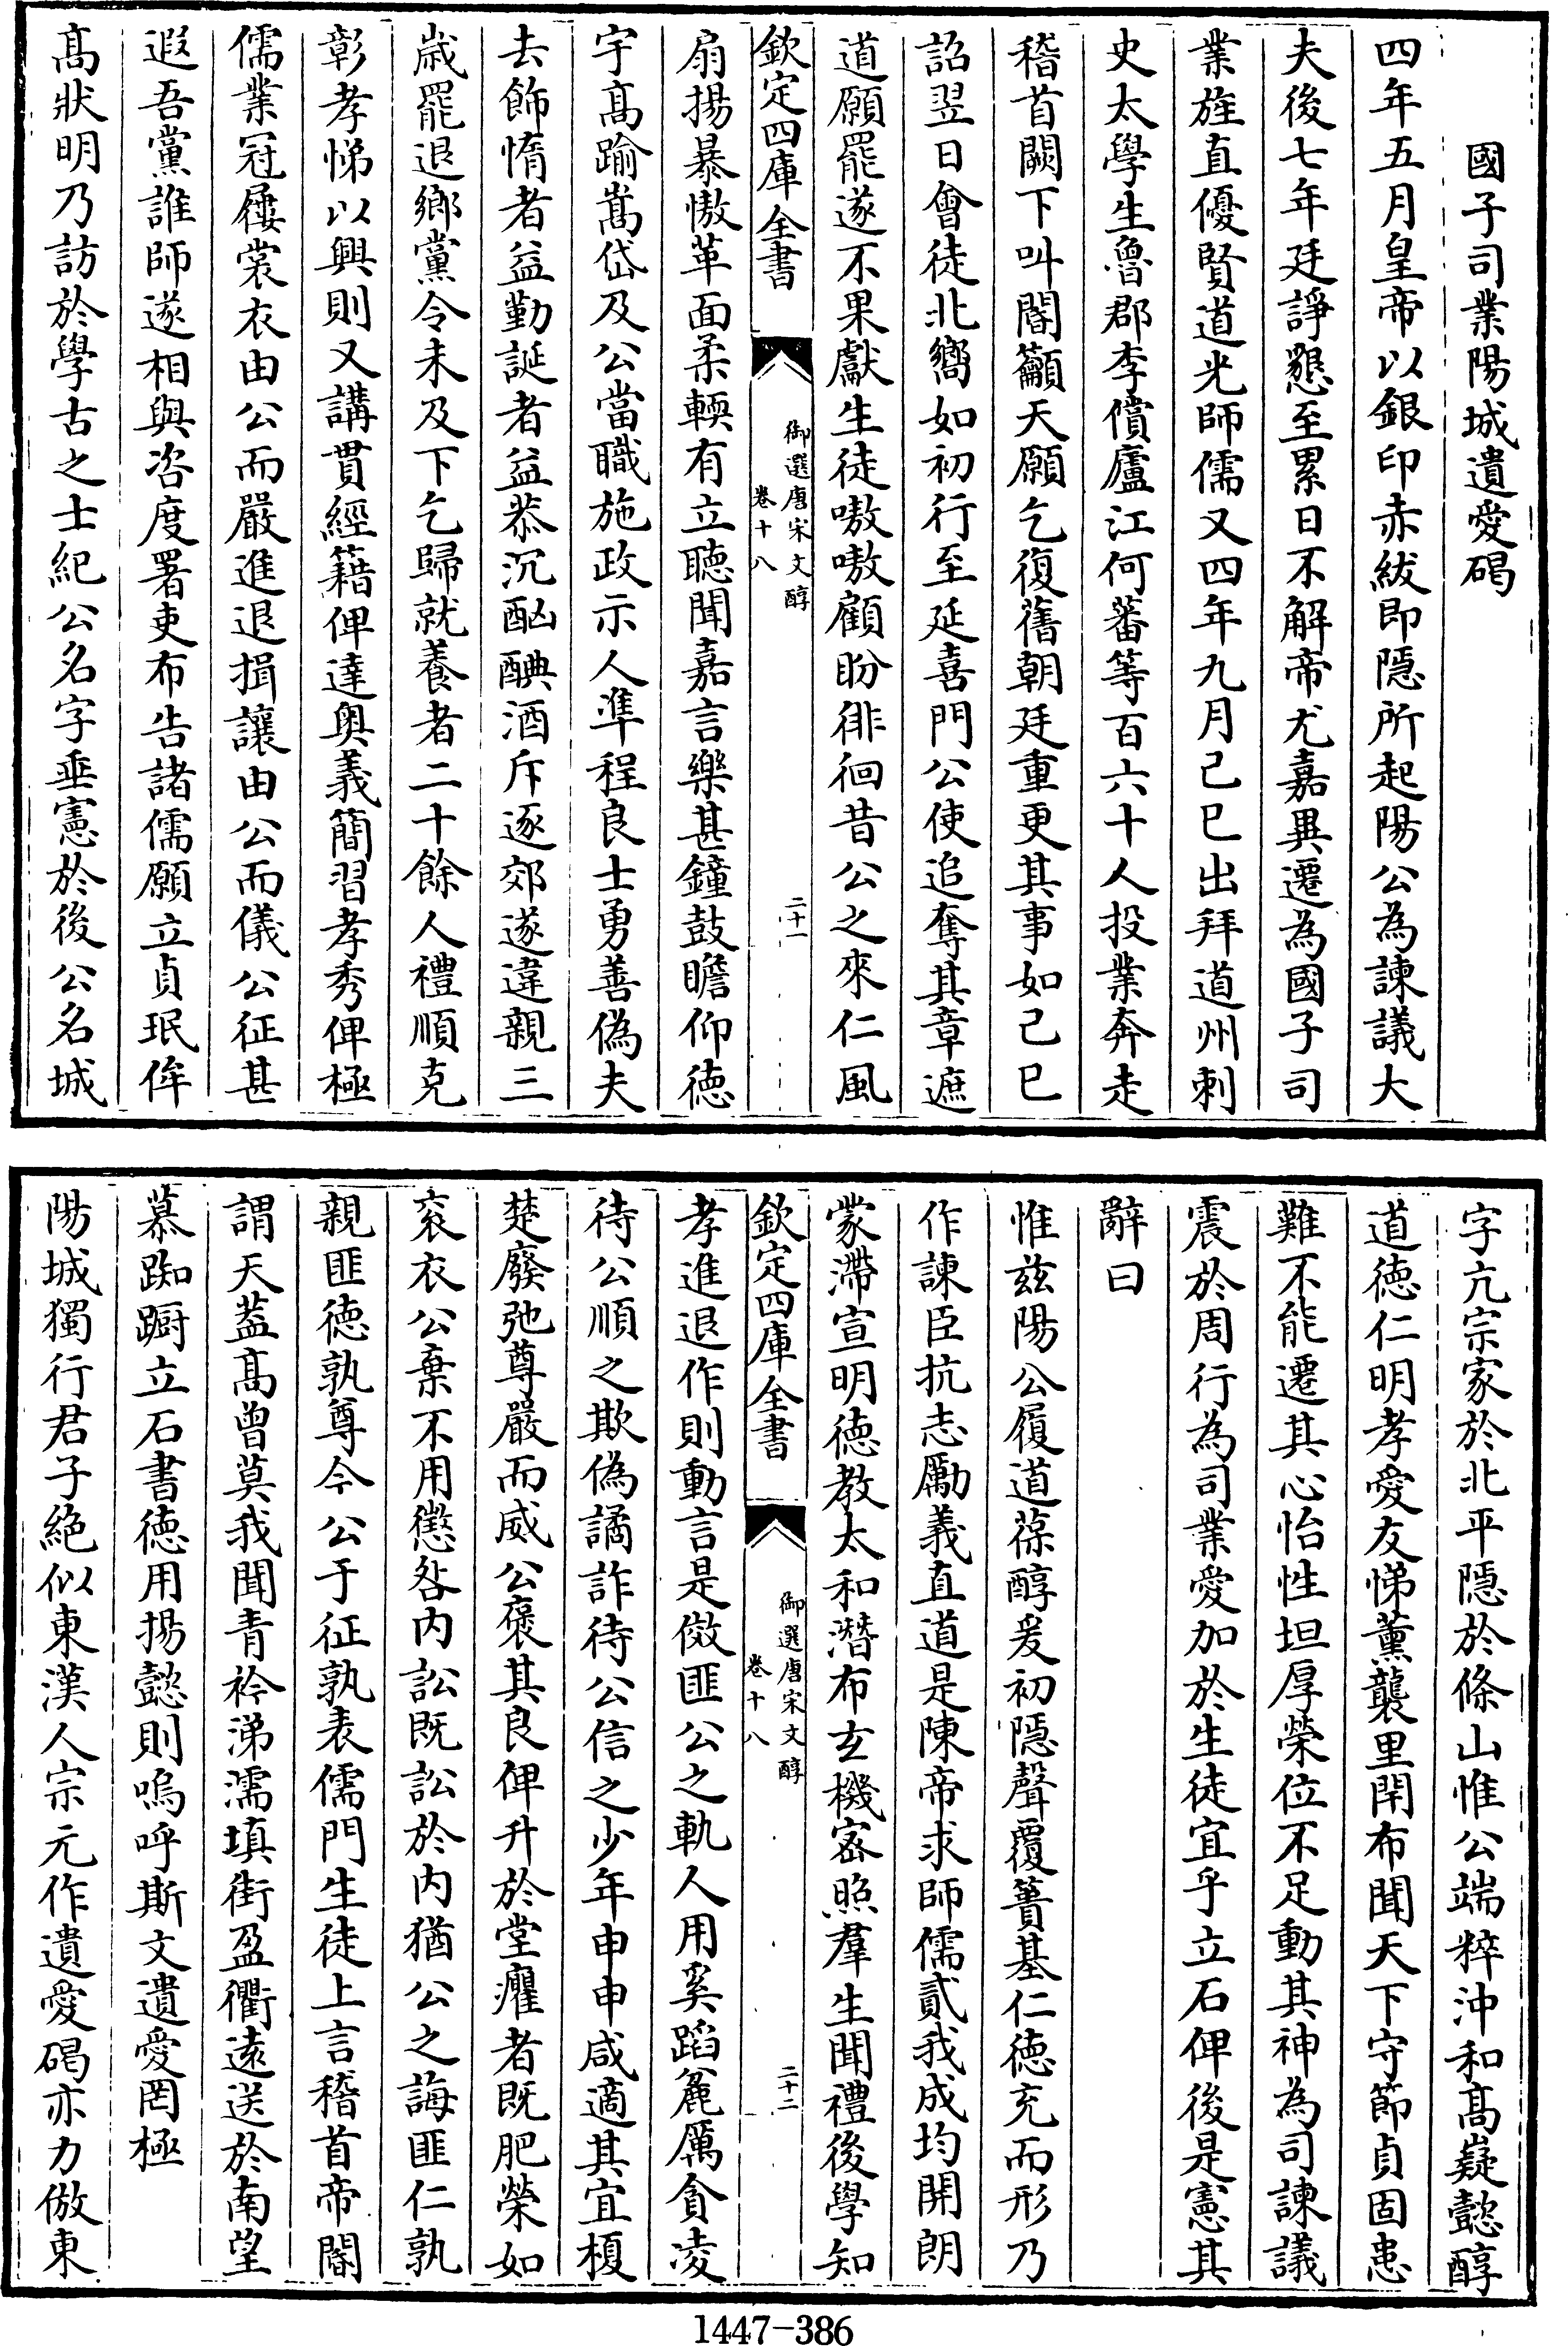 國子司業陽城遺愛碣
四年五月皇帝以銀印赤紱即隱所起陽公為諫議大
夫後七年廷諍懇至累日不解帝尤嘉異遷為國子司
業旌直優賢道光師儒又四年九月己巳出拜道州刺
史太學生魯郡李儻廬江何蕃等百六十人投業奔走
稽首闕下叫閽籲天願乞復舊朝廷重更其事如己巳
詔翌日會徒北嚮如初行至延喜門公使追奪其章遮
道願罷遂不果獻生徒嗷嗷顧盼徘徊昔公之來仁風
欽定四庫全書
御選唐宋文醇
卷十八
二十一
扇揚暴慠革面柔輭有立聽聞嘉言樂甚鐘鼓瞻仰德
宇高踰嵩岱及公當職施政示人準程良士勇善偽夫
去飾惰者益勤誕者益恭沉酗腆酒斥逐郊遂違親三
歲罷退鄉黨令未及下乞歸就養者二十餘人禮順克
彰孝悌以興則又講貫經籍俾達奥義簡習孝秀俾極
儒業冠屨裳衣由公而嚴進退揖讓由公而儀公征甚
遐吾黨誰師遂相與咨度署吏布告諸儒願立貞珉侔
高狀明乃訪於學古之士紀公名字垂憲於後公名城
字亢宗家於北平隱於條山惟公端粹沖和高嶷懿醇
道德仁明孝愛友悌薰襲里閈布聞天下守節貞固患
難不能遷其心怡性坦厚榮位不足動其神為司諫議
震於周行為司業愛加於生徒宜乎立石俾後是憲其
辭曰
惟兹陽公履道葆醇爰初隱聲覆簣基仁德充而形乃
作諫臣抗志勵義直道是陳帝求師儒貳我成均開朗
蒙滯宣明德教太和潛布玄機密照羣生聞禮後學知
欽定四庫全書
御選唐宋文醇
卷十八
二十二
孝進退作則動言是俲匪公之軌人用奚蹈麄厲貪凌
待公順之欺偽譎詐待公信之少年申申咸適其宜榎
楚廢弛尊嚴而威公褒其良俾升於堂癯者既肥榮如
衮衣公棄不用懲咎内訟既訟於内猶公之誨匪仁孰
親匪德孰尊今公于征孰表儒門生徒上言稽首帝閽
謂天葢高曾莫我聞青衿涕濡填街盈衢遠送於南望
慕踟蹰立石書德用揚懿則嗚呼斯文遺愛罔極
陽城獨行君子絶似東漢人宗元作遺愛碣亦力倣東
1447-386